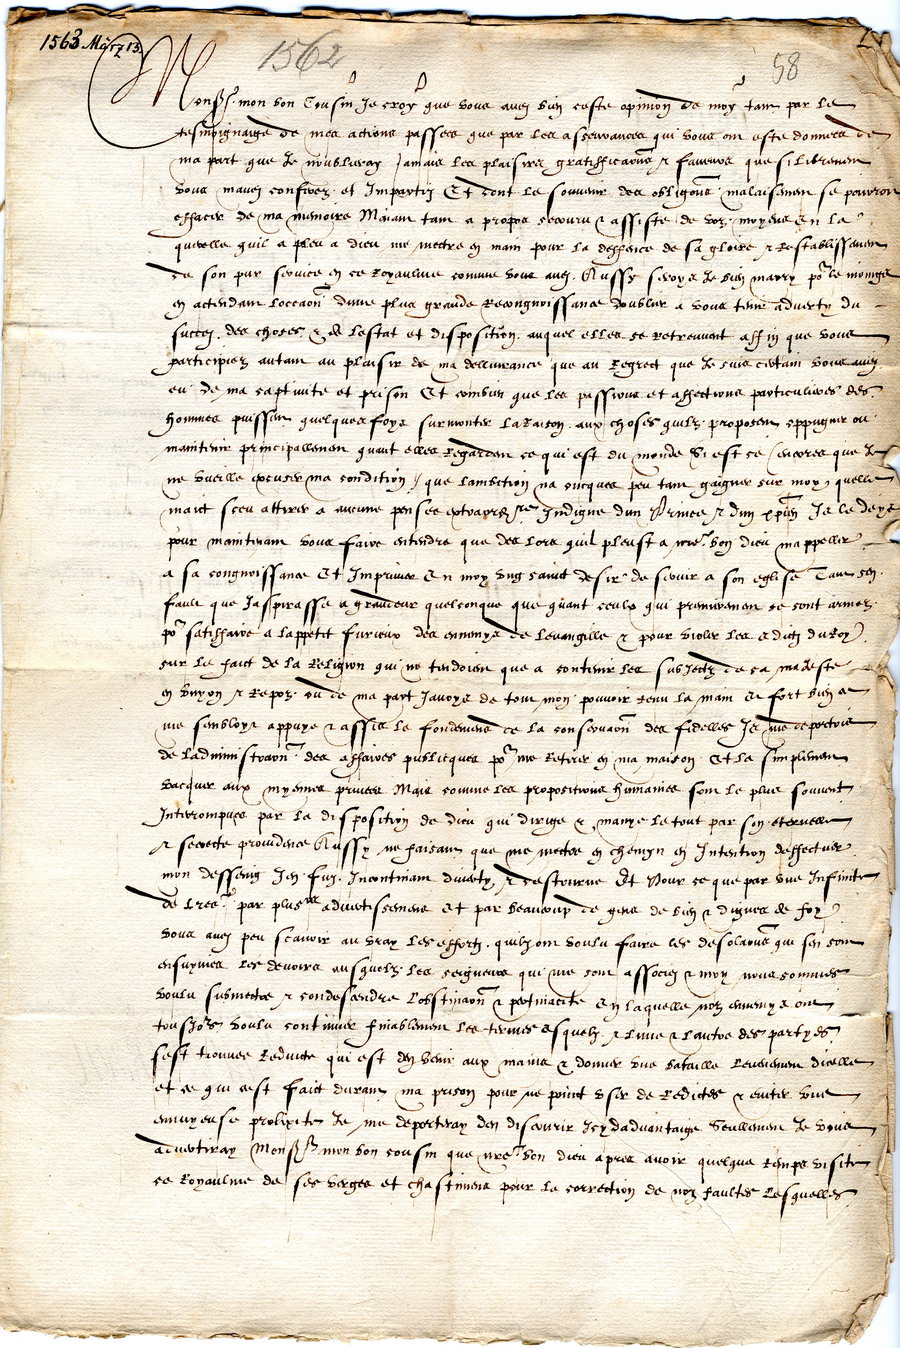 1563 März 13.
1562
58
Monsr. mon bon Cousin Je croy que vous avez bien ceste opinion de moy tant par le
tesmoignaige de mes actions passees que par les asseurances qui vous ont este donnees de
ma part que Je noublieray Jamais les plaisirs gratifficaons & faveurs que si librement
vous mavez conferez et Impartiz Et dont le souvenir des obligons malaisement se pourront
effacer de ma memoire Maiant tant a propos secouru & assiste de voz moyens en la
querelle quil a pleu a dieu me mectre en main pour la deffence de sa gloire & Restablissement
de son pur service en ce Royaulme comme vous avez. Aussy seroys Je bien marry por le moings
en actendant loccaon dune plus grande Recongnoissance doublier a vous tenir adverty du
succez des choses & de lestat et disposition auquel elles se retrouvent affin que vous
participiez autant au plaisir de ma delivrance que au Regret que Je suis certain vous avez
eu de ma captivite et prison Et combien que les passions et affections particulieres des
hommes puissent quelques foys surmonter la Raison aux choses quilz proposent oppugner ou
maintenir principallement quant elles Regardent ce qui est du monde Si est ce (encores que Je
ne vueille excuser ma condition) que lambition na oncques peu tant gaigner sur moy quelle
mait sceu attirer a aucune pensee Indigne dun Prince & dun xpien Je le deys
pour maintenant vous faire entendre que des lors quil pleust a nre bon dieu mappeller
a sa congnoissance Et Imprimer en moy ung sainct desir de servir a son eglise Tant sen
fault que Jaspirasse a grandeur quelconque que quant ceulx qui premierement se sont armez
por satisfaire a lappetit furieux des ennemys de levangille & pour violer les edictz du Roy
sur le faict de la Religion qui ne tendoient que a contenir les subjectz de sa majeste
en unyon & Repoz ou de ma part Javoys de tout mon pouvoir tenu la main & fort bien a
me sembloyt appuye & assis le fondement de la conservaon des fidelles Je me deportois
de ladministraon des affaires publicques por me Retirer en ma maison Et la simplement
vacquer aux myennes privees Mais comme les propositions humaines sont le plus souvent
Interrompues par la disposition de dieu qui dirige & manye le tout par son eternelle
& secrete providence Aussy ne faisant que me mectre en chemyn en Intention deffectuer
mon desseing Jen fuz Incontinant diverty & destourne Et Pour ce que par une Infinite
de lres par plusrs advertissemens et par beaucoup de gens de bien & dignes de foy
vous avez peu scavoir au vray les effortz quilz ont voulu faire les desolaons qui sen sont
ensuyvies les devoirs ausquelz les seigneurs qui me sont associez & moy nous sommes
voulu submectre & condescendre lobstinaon & pertinacite en laquelle noz ennemys ont
tousjors voulu continuer finablement les termes esquelz & lune & lautre des partyes
sest trouvee Reduicte qui est den venir aux mains & donner une bataille levenement dicelle
et ce qui sest faict durant ma prison pour ne point user de Redictes & eviter une
ennuyeuse prolixite Je me deporteray den discourir Icy dadvantaige Seullement Je vous
advertiray Monsr mon bon cousin que nre bon dieu apres avoir quelque temps visite
ce Royaulme de ses verges et chastimens pour la correction de noz faultes lesquelles